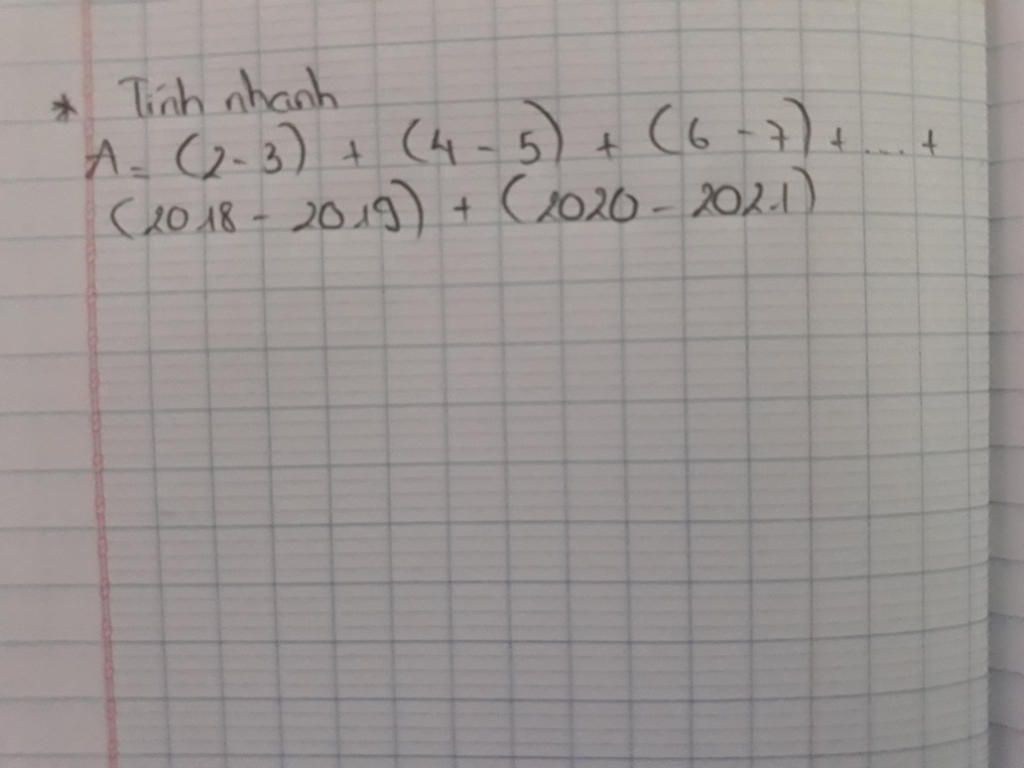 * Tính nhanh
A = (2 - 3) + (4 - 5) + (6 - 7) + .... +
(2018 - 2019) + (2020 - 2021)